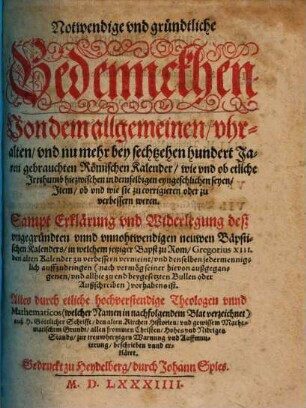 Notwendige vnd gründtliche
Bedennckhen
Von dem allgemeinen/ vhr-
alten/ vnd nu mehr bey sechtzehen hundert Ja-
ren gebrauchten Römischen Kalender/ wie vnd ob etliche
Irrthumb hiezwischen in demselbigen eyngeschlichen seyen/
Item/ ob vnd wie sie zu corrigieren oder zu
verbessern weren.
Sampt Erklärung vnd Widerlegung deß
vngegründten vnnd vnnohtwendigen neuwen Bäpsti-
schen Kalenders/ in welchem jetziger Bapst zu Rom/ Gregorius XIII.
den alten Kalender zu verbessern vermeint/ vnd denselben jedermennig-
lich auffzudringen (nach vermög seiner hieuon außgegan-
genen/ vnd allhie zu end beygesetzten Bullen oder
Außschreiben) vorhabens ist.
Alles durch etliche hochverstendige Theologen vnnd
Mathematicos/ (welcher Namen in nachfolgendem Blat verzeichnet)
auß H. Göttlicher Schrifft/ den alten Kirchen Historien/ vnd gewissem Mathe-
matischem Grundt/ allen frommen Christen/ Hohes vnd Nidriges
Stands/ zur treuwhertzigen Warnung vnd Auffmun-
terung/ beschrieben vnnd er-
kläret.
Gedruckt zu Heydelberg/ durch Johann Spies.
M. D. LXXXIIII.